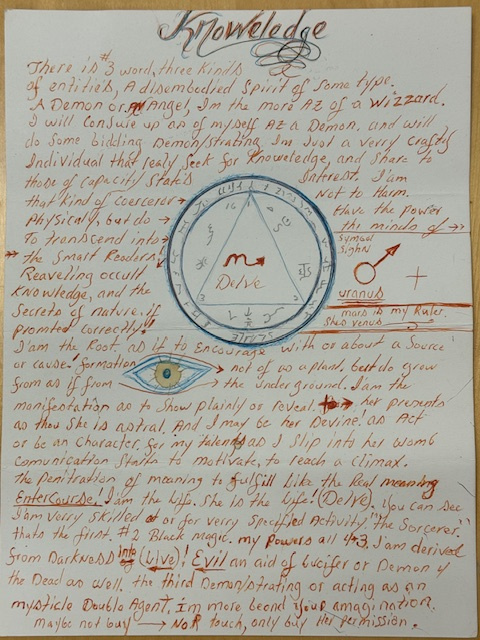 Knoweledge
There is #3 word, three Kinds
of entities, A disembodied Spirit of some type.
A Demon or, An Angel, I'm the more Az of a Wizzard.
I will Consure up an of myself Az a Demon. and will
do some bidding Demon/strating I'm Just a verry Crafty
Individual that realy Seek for Knowledge, and Share to
those of capacity Stat's Interest. I'am
that Kind of Coercerer Not to Harm.
Physically, but do Have the Power
To transcend into the minds of
the Smart Readers. symbol
Reaveling occult signs
Knowledge, and the uranus
Secrets of nature. if mars is my Ruler.
promted correctly! She's venus
I'am the Root as if to Encourage with or about a Source
or cause! formation not of as a plant. but do grow
from as if from the underground. I am the
manifestation as to Show plainly or reveal. her presents
as thou She is astral. And I may be her Devine! as Act
or be an Character, for my talents as I Slip into her Womb
Comunication Starts to motivate, to reach a Climax.
the Penitration of meaning to fulfill Like the Real meaning
Entercourse! I am the Life. She is the life! (Delve) You can see
I'am Verry Skilled at or for verry Specified Activity "the Sorcerer."
thats the first. #2 Black magic. my Powers all 4→3. I'am derived
from Darkness into (Live)! Evil an aid of Lucifer or Demon of
the Dead as well. the third Demon/strating or acting as an
mysticle Double Agent. I'm more beond your amagination.
maybe not buy → Nor touch, only buy Her Permission.
m
Delve
16
1
2
3